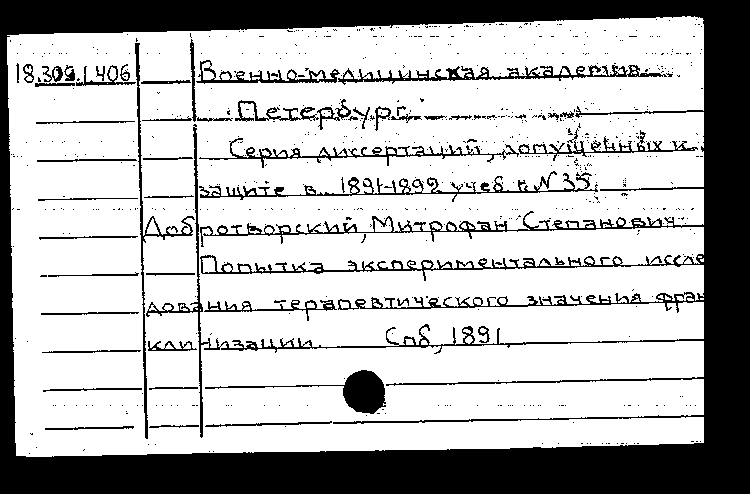 18.309.1406 Военно-медицинская академия.
Петербург.
Серия диссертаций, допущенных к
защите в 1891-1892 учеб. г. N 35.
Добротворский, Митрофан Степанович
Попытка экспериментального иссле
дования терапевтического значения фран
клинизации. Спб, 1891.